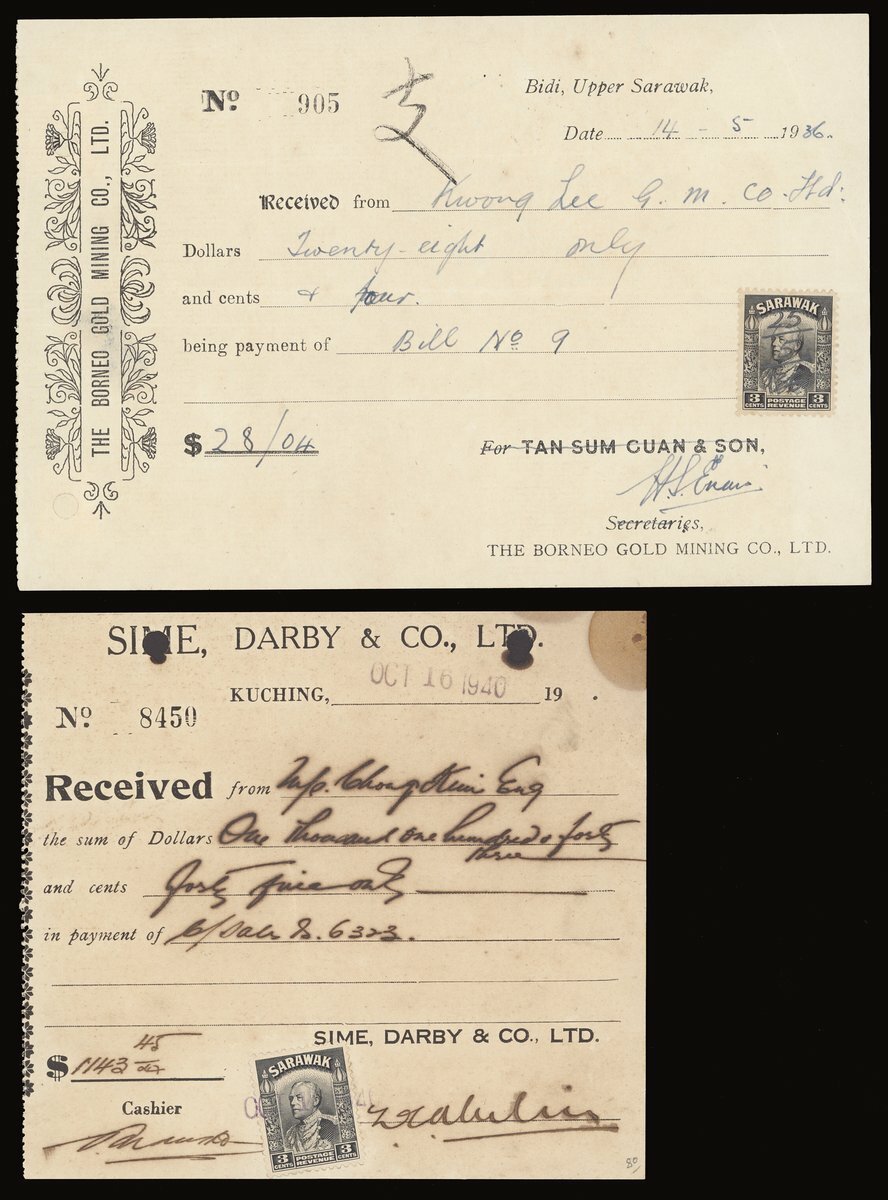 THE BORNEO GOLD MINING CO., LTD.
Nº 905
支
Bidi, Upper Sarawak,
Date 14 - 5 1936.
Received from Kwong Lee G. M. Co. Ltd:
Dollars Twenty-eight only
and cents & four.
being payment of Bill Nº 9
SARAWAK
25
3 CENTS POSTAGE REVENUE 3 CENTS
$ 28/04
For TAN SUM GUAN & SON,
Secretaries,
THE BORNEO GOLD MINING CO., LTD.
SIME, DARBY & CO., LTD.
KUCHING, OCT 16 1940 19 .
Nº 8450
Received from M/s. Chong Kim Eng
the sum of Dollars One thousand one hundred & forty
three
and cents forty five only
in payment of C/Sale No. 6323.
SIME, DARBY & CO., LTD.
$ 1143 45
Cashier
SARAWAK
3 CENTS POSTAGE REVENUE 3 CENTS
80/